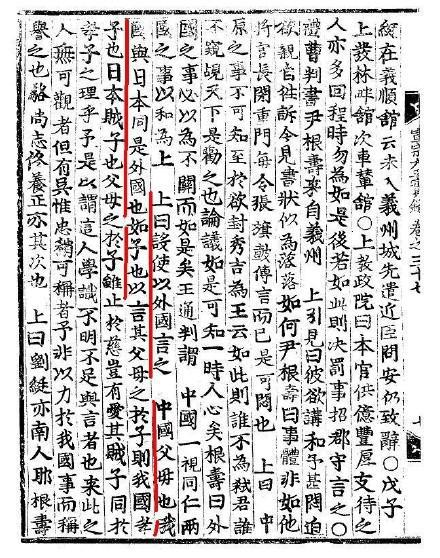 綎在義順館云未入義州城先遣近臣問安仍致辭○戊子
上發林畔館次車輦館○上敎政院曰本官供億豊厚支待之
人亦多回程時勿爲如是後若如此則決罰事招郡守言之○
禮曹判書尹根壽來自義州 上引見曰彼欲講和予甚悶迫
欲親官往訴令見書狀似爲落落如何尹根壽曰事體非如他
將官長閉重門每令張旗鼓傳言而已是可悶也 上曰中
原之事不可知至於欲封秀吉爲王云如此則誰不爲弑君誰
不窺覘天下是勸之也論議如是可知一時人心矣根壽曰外
國之事必以爲不關而如是矣王通判謂 中國一視同仁兩
國之事以和爲上 上曰設使以外國言之 中國父母也我
國與日本同是外國也如子也以言其父母之於子則我國孝
子也日本賊子也父母之於子雖止於慈豈有愛其賊子同於
孝子之理乎予是以謂這人學識不明不足與言者也來此之
人無可觀者但有吳惟忠稍可稱者予非以力於我國事而稱
譽之也駱尙志佟養正亦其次也 上曰劉綎亦南人耶根壽